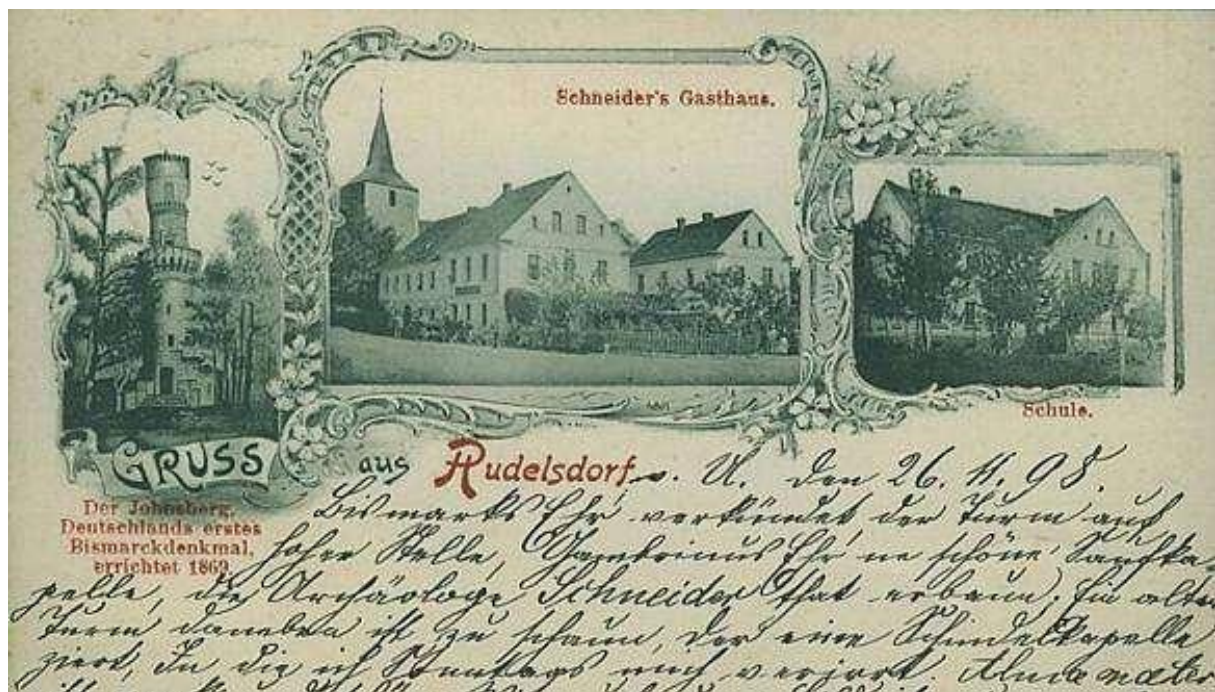 Schneider's Gasthaus.
Schule.
GRUSS aus Rudelsdorf
Der Johnsberg,
Deutschlands erstes
Bismarckdenkmal,
errichtet 1869.
U. den 26. 11. 98.
Bismarks Ehr' verkündet der Turm auf
hoher Stelle, Gambrinus Ehr 'ne schöne Saufka-
pelle, die Archäologe Schneider that erbaun; Ein alter
Turm daneben ist zu schaun, der eine Schindelkapelle
ziert, In die ich Sonntags mich verirrt.